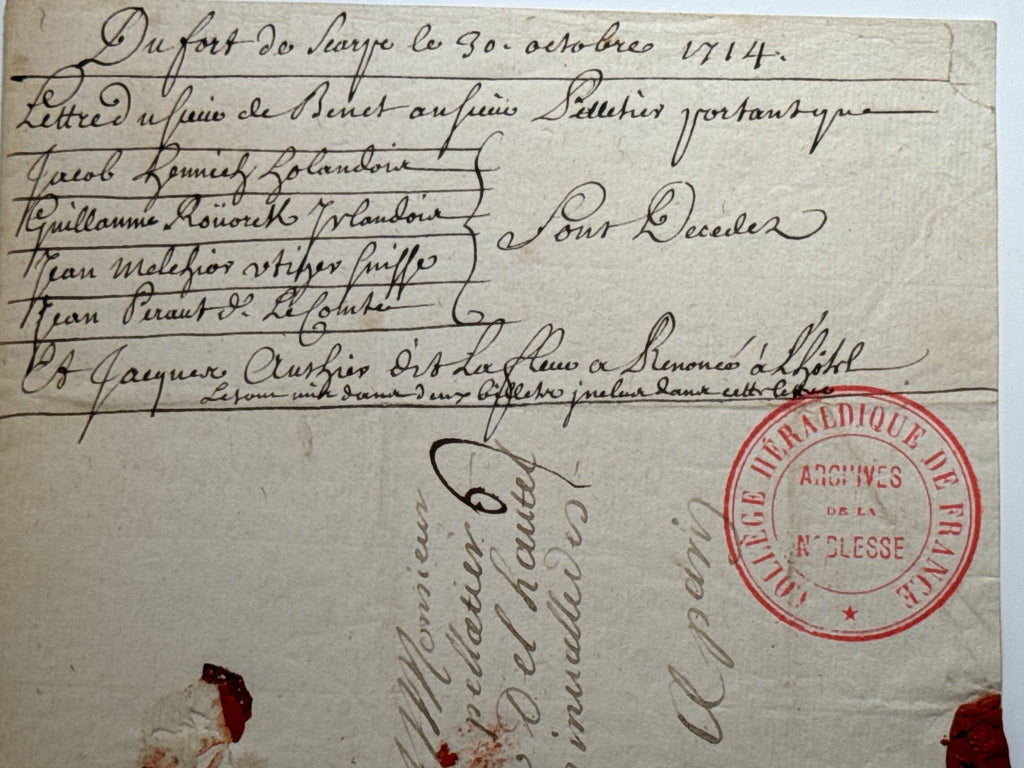 Du fort de Scarpe le 30. octobre 1714.
Lettre du sieur de Benet au sieur Pelletier portant que
Jacob Hennich holandois
Guillaume Roüorck Irlandois
Jean Melchior utiger suisse
Jean Peraut dt. Le Comte
Sont Decedez
Et Jacques Authier dit La fleur a Renoncé à L'hôtel
Le tout mis dans deux billets inclus dans cette lettre
6
Monsieur
pelletier
D el hautel
A paris
COLLÈGE HÉRALDIQUE DE FRANCE
ARCHIVES
DE LA
NOBLESSE